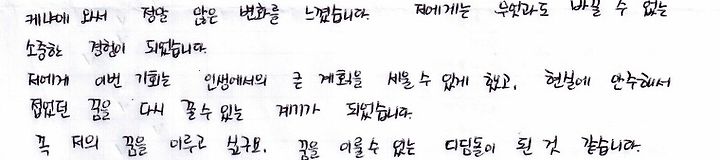 케냐에 와서 정말 많은 변화를 느꼈습니다. 저에게는 무엇과도 바꿀 수 없는
소중한 경험이 되었습니다.
저에게 이번 기회는 인생에서의 큰 계획을 세울 수 있게 했고, 현실에 안주해서
접었던 꿈을 다시 꿀 수 있는 계기가 되었습니다.
꼭 저의 꿈을 이루고 싶구요. 꿈을 이룰 수 있는 디딤돌이 된 것 같습니다.